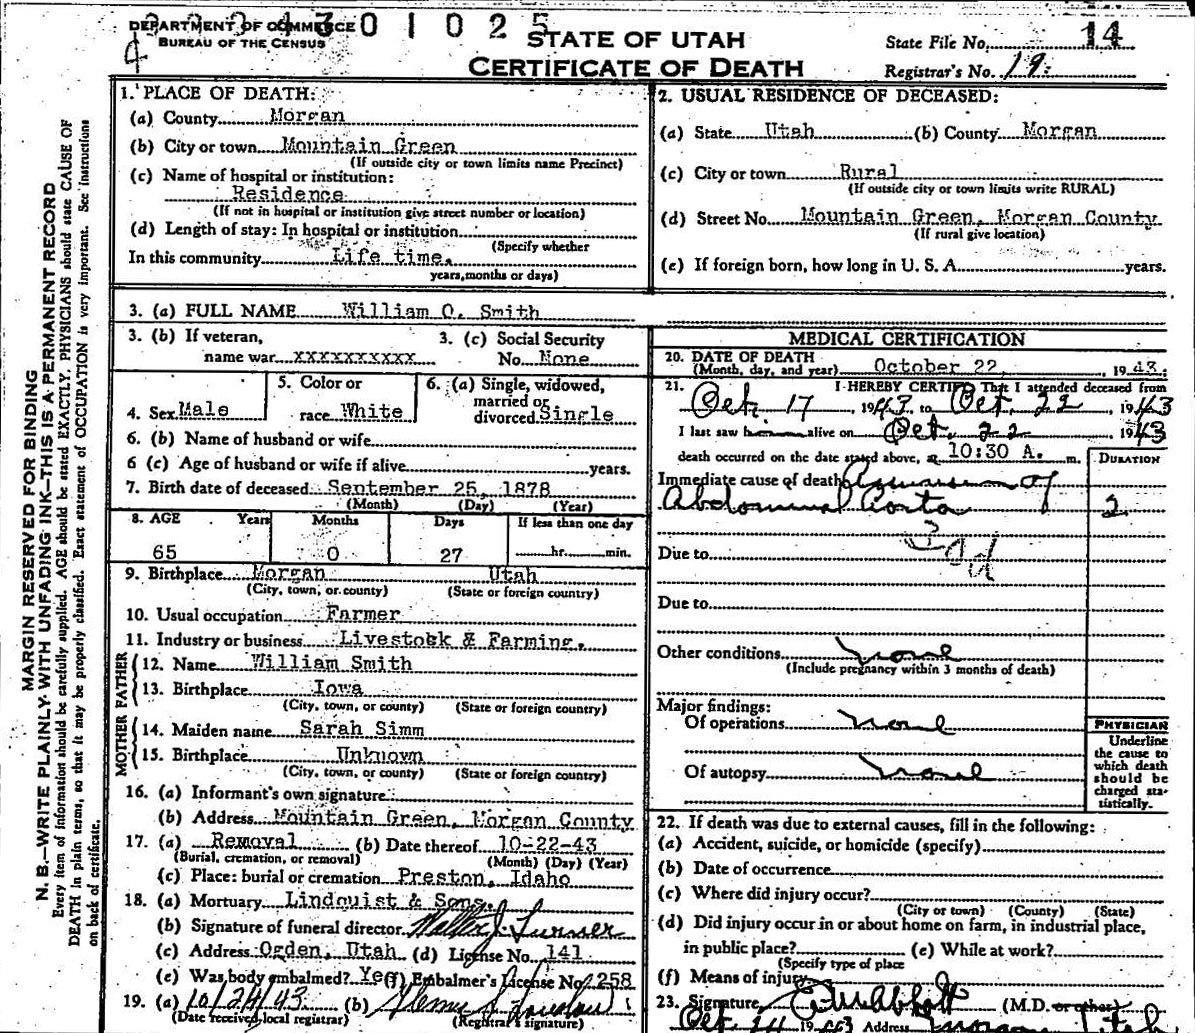 DEPARTMENT OF COMMERCE
BUREAU OF THE CENSUS
4
0 1 0 2 5
STATE OF UTAH
CERTIFICATE OF DEATH
State File No. 14
Registrar's No. 19
MARGIN RESERVED FOR BINDING
N. B.—WRITE PLAINLY WITH UNFADING INK—THIS IS A PERMANENT RECORD
Every item of information should be carefully supplied. AGE should be stated EXACTLY. PHYSICIANS should state CAUSE OF
DEATH in plain terms, so that it may be properly classified. Exact statement of OCCUPATION is very important. See instructions
on back of certificate.
1. PLACE OF DEATH:
(a) County Morgan
(b) City or town Mountain Green
(If outside city or town limits name Precinct)
(c) Name of hospital or institution:
Residence
(If not in hospital or institution give street number or location)
(d) Length of stay: In hospital or institution
(Specify whether
In this community Life time.
years, months or days)
2. USUAL RESIDENCE OF DECEASED:
(a) State Utah (b) County Morgan
(c) City or town Rural
(If outside city or town limits write RURAL)
(d) Street No. Mountain Green, Morgan County
(If rural give location)
(e) If foreign born, how long in U. S. A. years.
3. (a) FULL NAME William O. Smith
3. (b) If veteran, 3. (c) Social Security
name war xxxxxxxxxx No. None
4. Sex Male
5. Color or
race White
6. (a) Single, widowed,
married or
divorced Single
6. (b) Name of husband or wife
6 (c) Age of husband or wife if alive years.
7. Birth date of deceased September 25, 1878
(Month) (Day) (Year)
8. AGE Years Months Days If less than one day
65 0 27 hr. min.
9. Birthplace Morgan Utah
(City, town, or county) (State or foreign country)
10. Usual occupation Farmer
11. Industry or business Livestock & Farming.
FATHER
12. Name William Smith
13. Birthplace Iowa
(City, town, or county) (State or foreign country)
MOTHER
14. Maiden name Sarah Simm
15. Birthplace Unknown
(City, town, or county) (State or foreign country)
16. (a) Informant's own signature
(b) Address Mountain Green, Morgan County
17. (a) Removal (b) Date thereof 10-22-43
(Burial, cremation, or removal) (Month) (Day) (Year)
(c) Place: burial or cremation Preston, Idaho
18. (a) Mortuary Lindquist & Sons.
(b) Signature of funeral director Walter J. Turner
(c) Address Ogden, Utah (d) License No. 141
(e) Was body embalmed? Yes (f) Embalmer's License No. 258
19. (a) 10/24/43 (b)
(Date received local registrar) (Registrar's signature)
MEDICAL CERTIFICATION
20. DATE OF DEATH
(Month, day, and year) October 22, 1943.
21. I HEREBY CERTIFY That I attended deceased from
Oct. 17, 1943 to Oct. 22, 1943
I last saw him alive on Oct. 22 1943
death occurred on the date stated above, at 10:30 A. m.
DURATION
Immediate cause of death Aneurism of
Abdominal Aorta 2
Due to
Due to
Other conditions none
(Include pregnancy within 3 months of death)
Major findings:
Of operations none
Of autopsy none
PHYSICIAN
Underline
the cause to
which death
should be
charged sta-
tistically.
22. If death was due to external causes, fill in the following:
(a) Accident, suicide, or homicide (specify)
(b) Date of occurrence
(c) Where did injury occur?
(City or town) (County) (State)
(d) Did injury occur in or about home on farm, in industrial place,
in public place? (e) While at work?
(Specify type of place
(f) Means of injury
23. Signature (M.D. or other)
Oct. 24 1943 Address